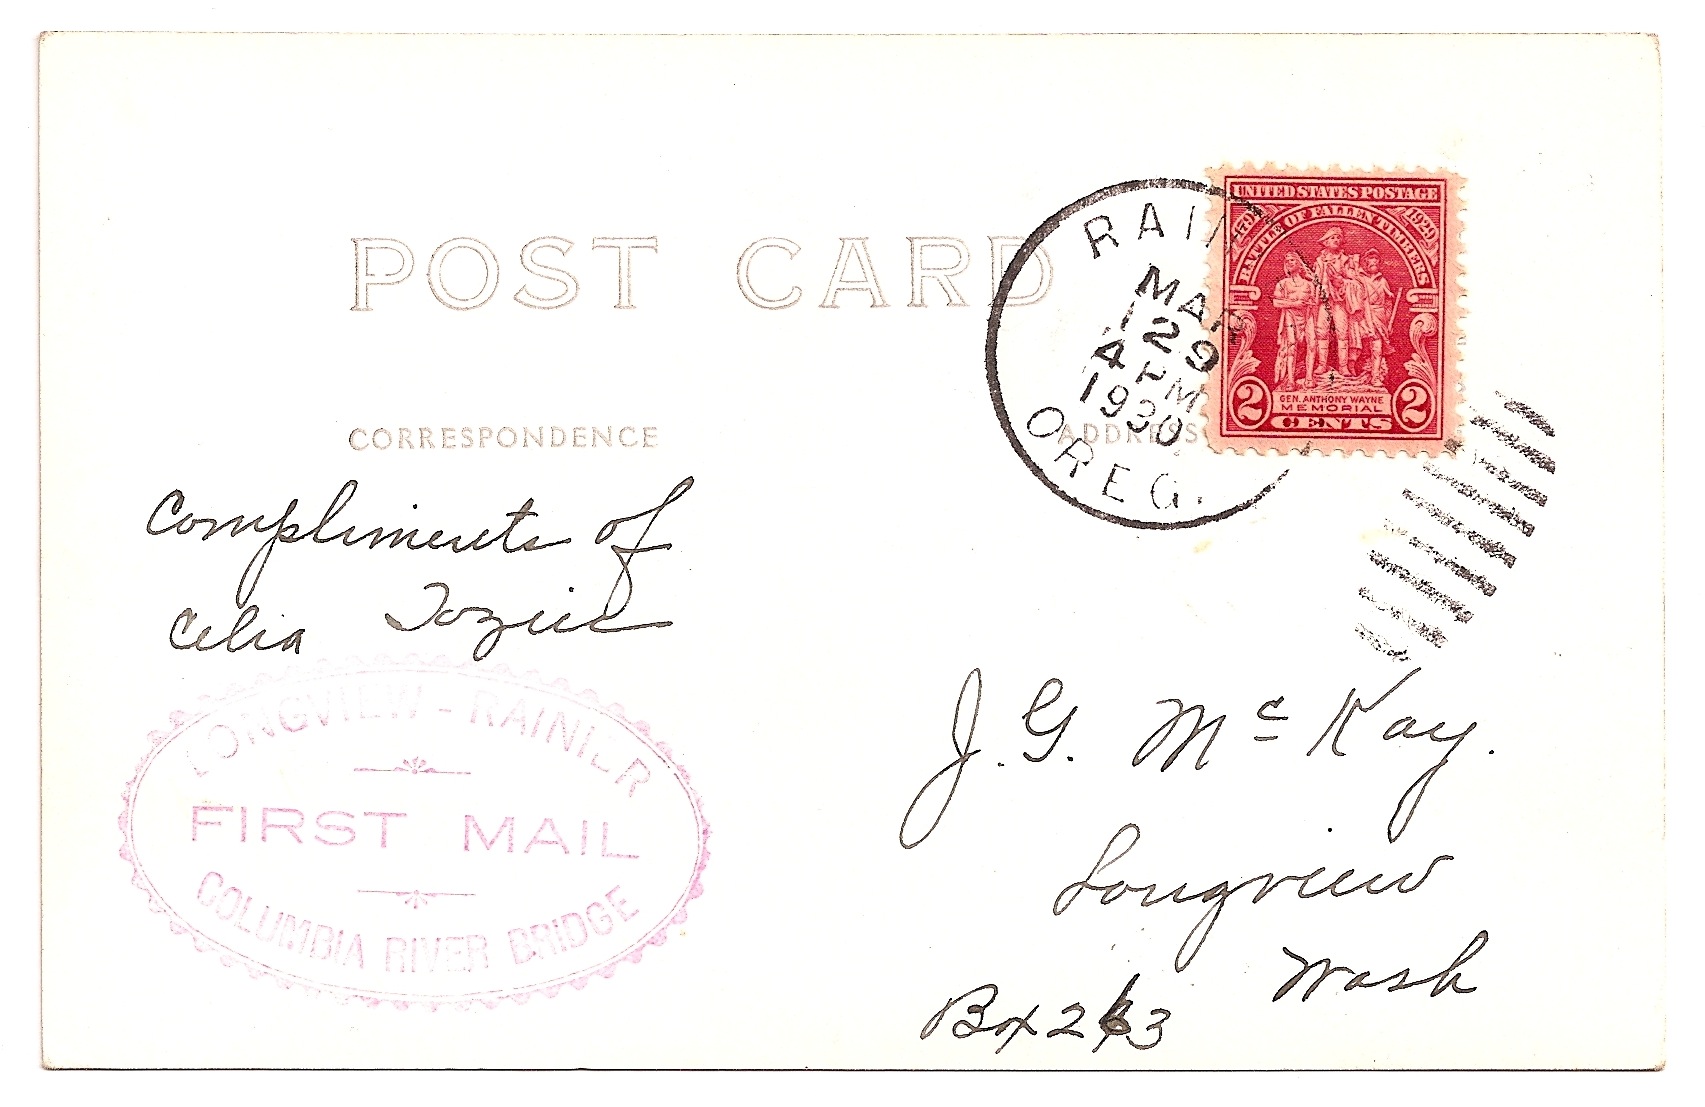 POST CARD
CORRESPONDENCE
ADDRESS
RAIN
MAR
29
4 PM
1930
OREG.
UNITED STATES POSTAGE
BATTLE OF FALLEN TIMBERS
1929
GEN. ANTHONY WAYNE
MEMORIAL
2 CENTS 2
Compliments of
Celia Tozier
LONGVIEW - RAINIER
FIRST MAIL
COLUMBIA RIVER BRIDGE
J. G. Mc Kay.
Longview
Wash
Box 263